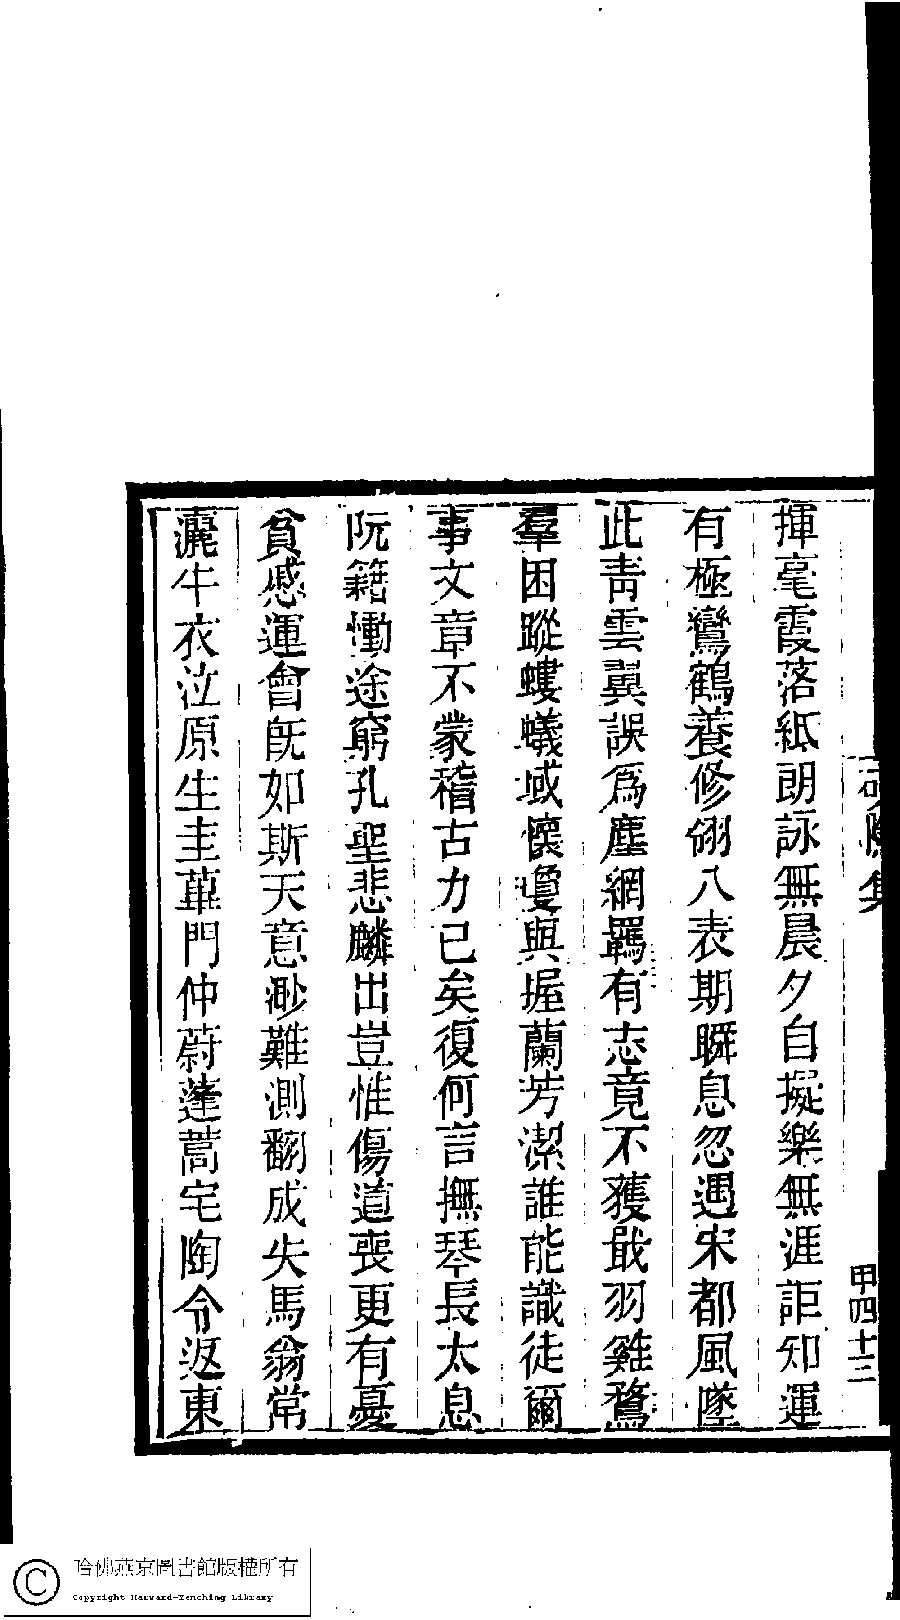 揮毫霞落紙朗詠無晨夕自擬樂無涯詎知運
有極鸞鶴養修翎八表期瞬息忽遇宋都風墜
此青雲翼誤爲塵網羈有志竟不獲戢羽雞鶩
羣困蹤螻蟻域懷瓊與握蘭芳潔誰能識徒爾
事文章不蒙稽古力已矣復何言撫琴長太息
阮籍慟途窮孔聖悲麟出豈惟傷道喪更有憂
貧慼運會旣如斯天意渺難測翻成失馬翁常
灑牛衣泣原生圭蓽門仲蔚蓬蒿宅陶令返東
甲四十三
哈佛燕京圖書館版權所有
Copyright Harvard-Yenching Library